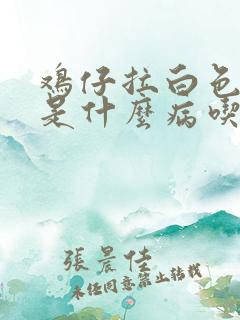 鸡仔拉白色
是什麼病喫
張晨佳
未经同意禁止转载